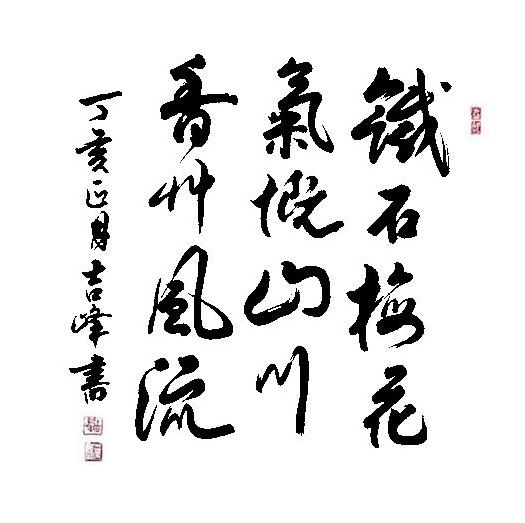 鐵石梅花
氣慨山川
香艸風流
丁亥正月吉峰書